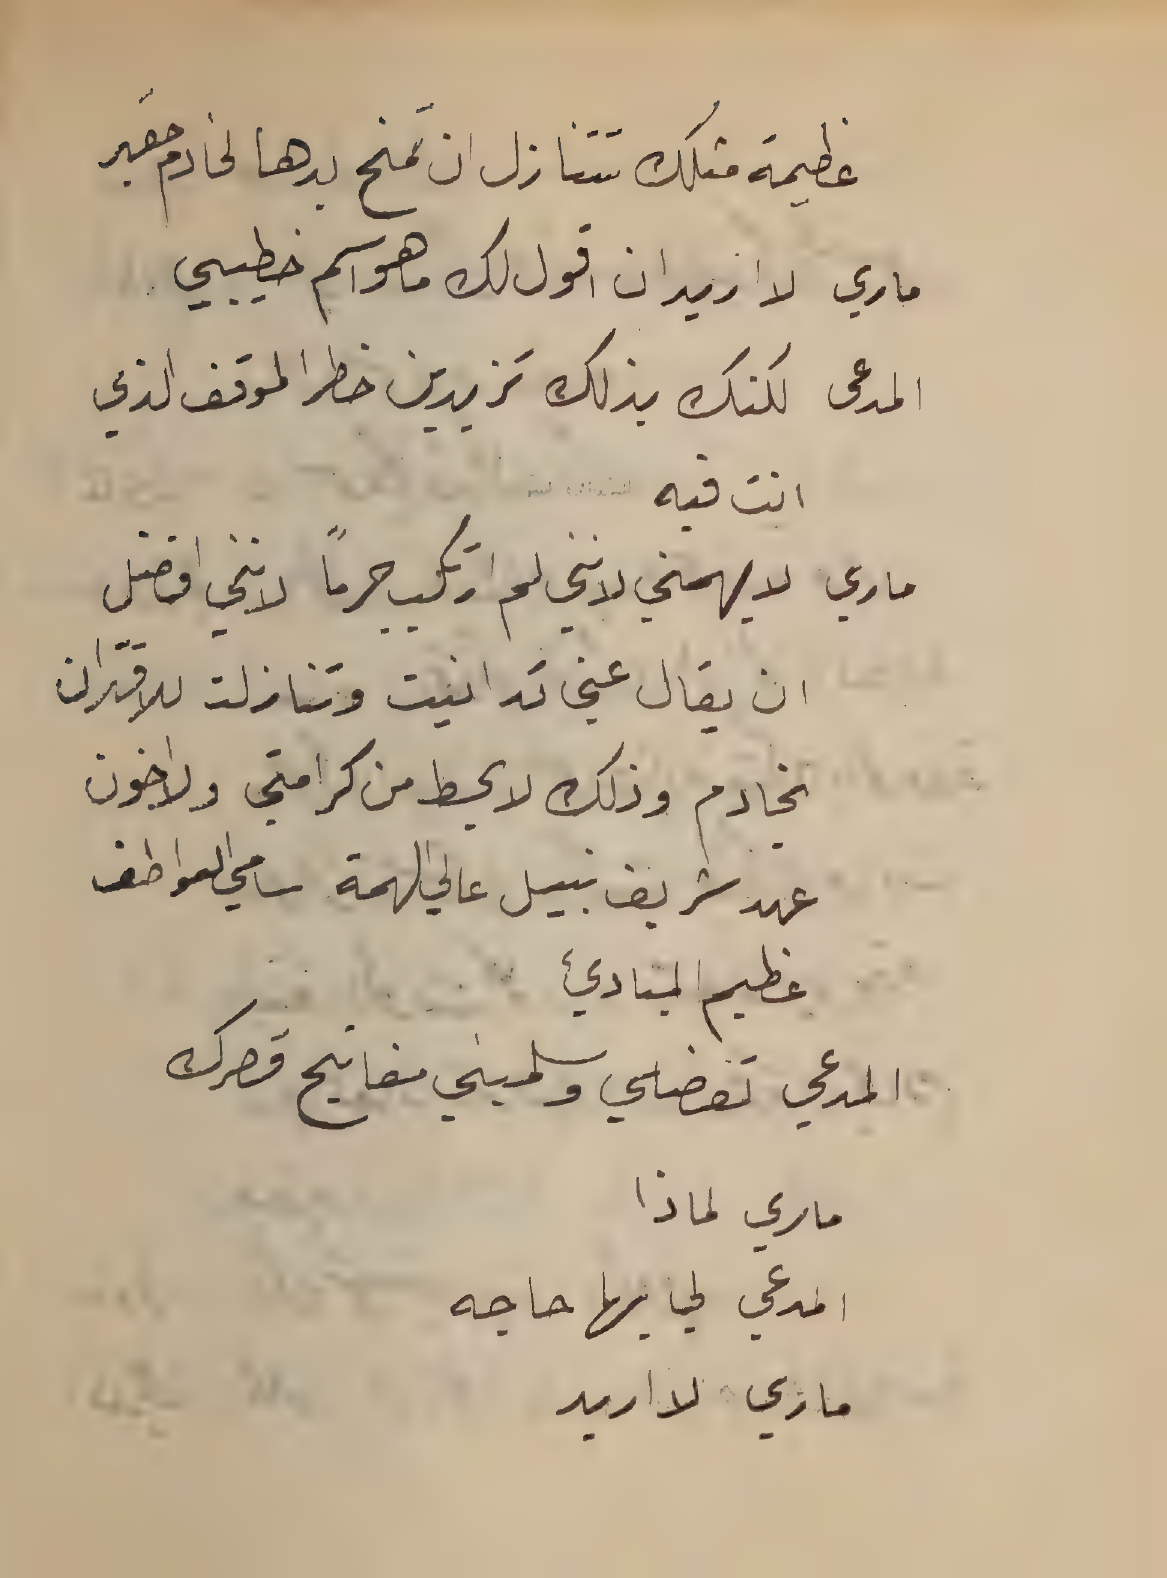 عظيمة مثلك تتنازل ان تمنح يدها لخادم حقير
ماري لا اريد ان اقول لك ما هو اسم خطيبي
المدعي لكنك بذلك تزيدين خطر الموقف الذي
انت فيه
ماري لا يهمني لانني لم ارتكب جرماً لانني افضل
ان يقال عني تدانيت وتنازلت للاقتران
بخادم وذلك لا يحط من كرامتي ولا اخون
عهد شريف نبيل عالي الهمة سامي العواطف
عظيم المبادئ
المدعي تفضلي وسلميني مفاتيح قصرك
ماري لماذا
المدعي لي بها حاجه
ماري لا اريد